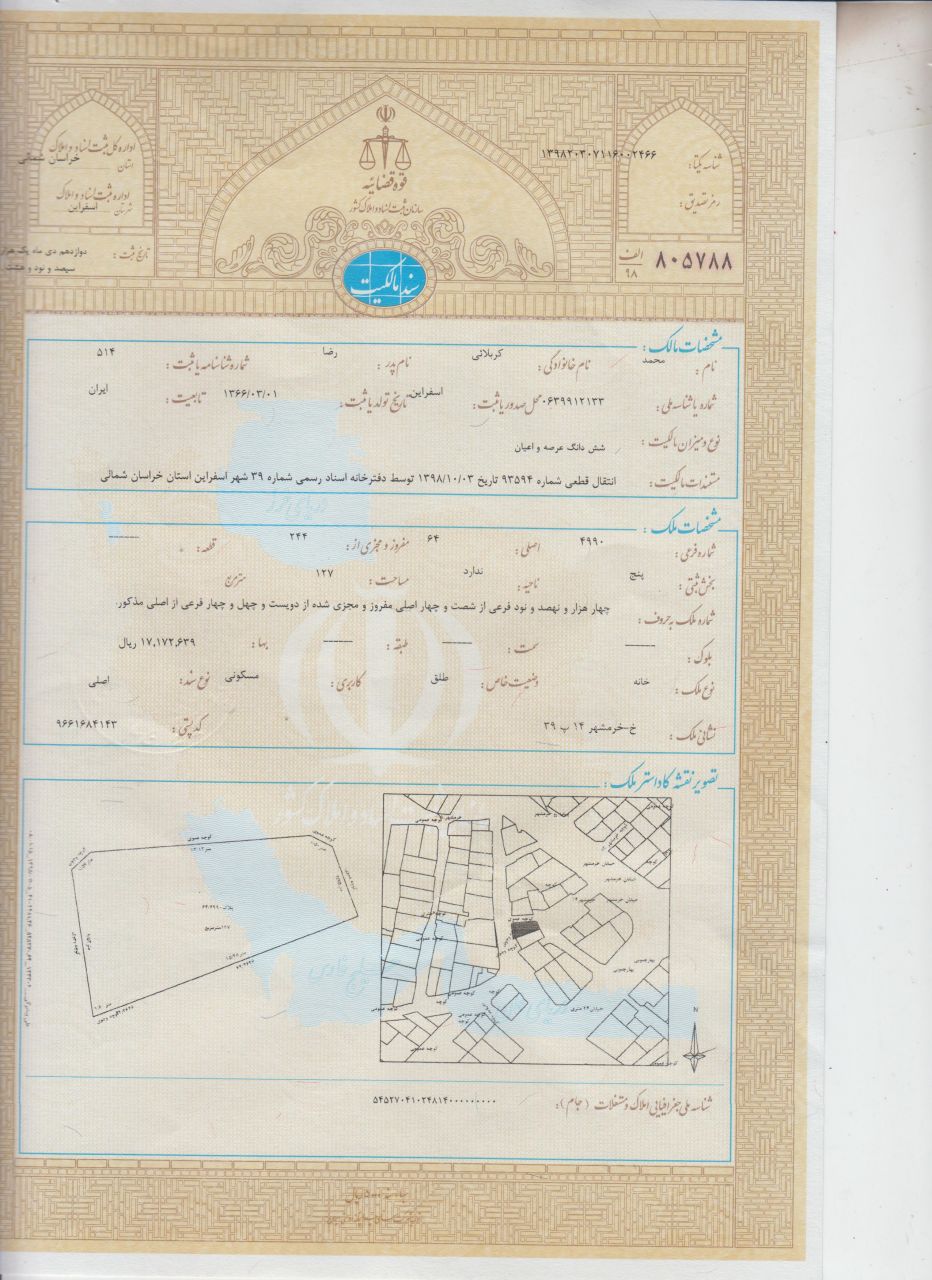 قوه قضائیه
سازمان ثبت اسناد و املاک کشور
سند مالکیت
شناسه یکتا: ۱۳۹۸۲۰۳۰۷۱۱۶۰۰۲۴۶۶
رمز تصدیق:
۸۰۵۷۸۸ الف ۹۸
اداره کل ثبت اسناد و املاک
استان خراسان شمالی
اداره ثبت اسناد و املاک
شهرستان اسفراین
تاریخ ثبت: دوازدهم دی ماه یک هزار
سیصد و نود و هشت
مشخصات مالک:
نام: محمد نام خانوادگی: کربلائی نام پدر: رضا شماره شناسنامه یا ثبت: ۵۱۴
شماره یا شناسه ملی: ۰۶۳۹۹۱۲۱۳۳ محل صدور یا ثبت: اسفراین تاریخ تولد یا ثبت: ۱۳۶۶/۰۳/۰۱ تابعیت: ایران
نوع و میزان مالکیت: شش دانگ عرصه و اعیان
مستندات مالکیت: انتقال قطعی شماره ۹۳۵۹۴ تاریخ ۱۳۹۸/۱۰/۰۳ توسط دفترخانه اسناد رسمی شماره ۳۹ شهر اسفراین استان خراسان شمالی
مشخصات ملک:
شماره فرعی: ۴۹۹۰ اصلی: ۶۴ مفروز و مجزی از: ۲۴۴ قطعه: -------
بخش ثبتی: پنج ناحیه: ندارد مساحت: ۱۲۷ مترمربع
شماره ملک به حروف: چهار هزار و نهصد و نود فرعی از شصت و چهار اصلی مفروز و مجزی شده از دویست و چهل و چهار فرعی از اصلی مذکور.
بلوک: ------- سمت: ------- طبقه: ------- بها: ۱۷,۱۷۲,۶۳۹ ریال
نوع ملک: خانه وضعیت خاص: طلق کاربری: مسکونی نوع سند: اصلی
نشانی ملک: خ-خرمشهر ۱۴ پ ۳۹ کد پستی: ۹۶۶۱۶۸۴۱۴۳
تصویر نقشه کاداستر ملک:
کوچه عمومی
پلاک ۶۴/۴۹۹۰
۱۲۷ مترمربع
خیابان خرمشهر
خیابان خرمشهر
خرمشهر ۱۴
کوچه عمومی
کوچه عمومی
خیابان ۲۴ متری
کوچه
کوچه عمومی
N
شناسه ملی جغرافیایی املاک و مستغلات (جام): ۵۴۵۲۷۰۴۱۰۲۴۸۱۴۰۰۰۰۰۰۰۰۰
دریای خزر
خلیج فارس